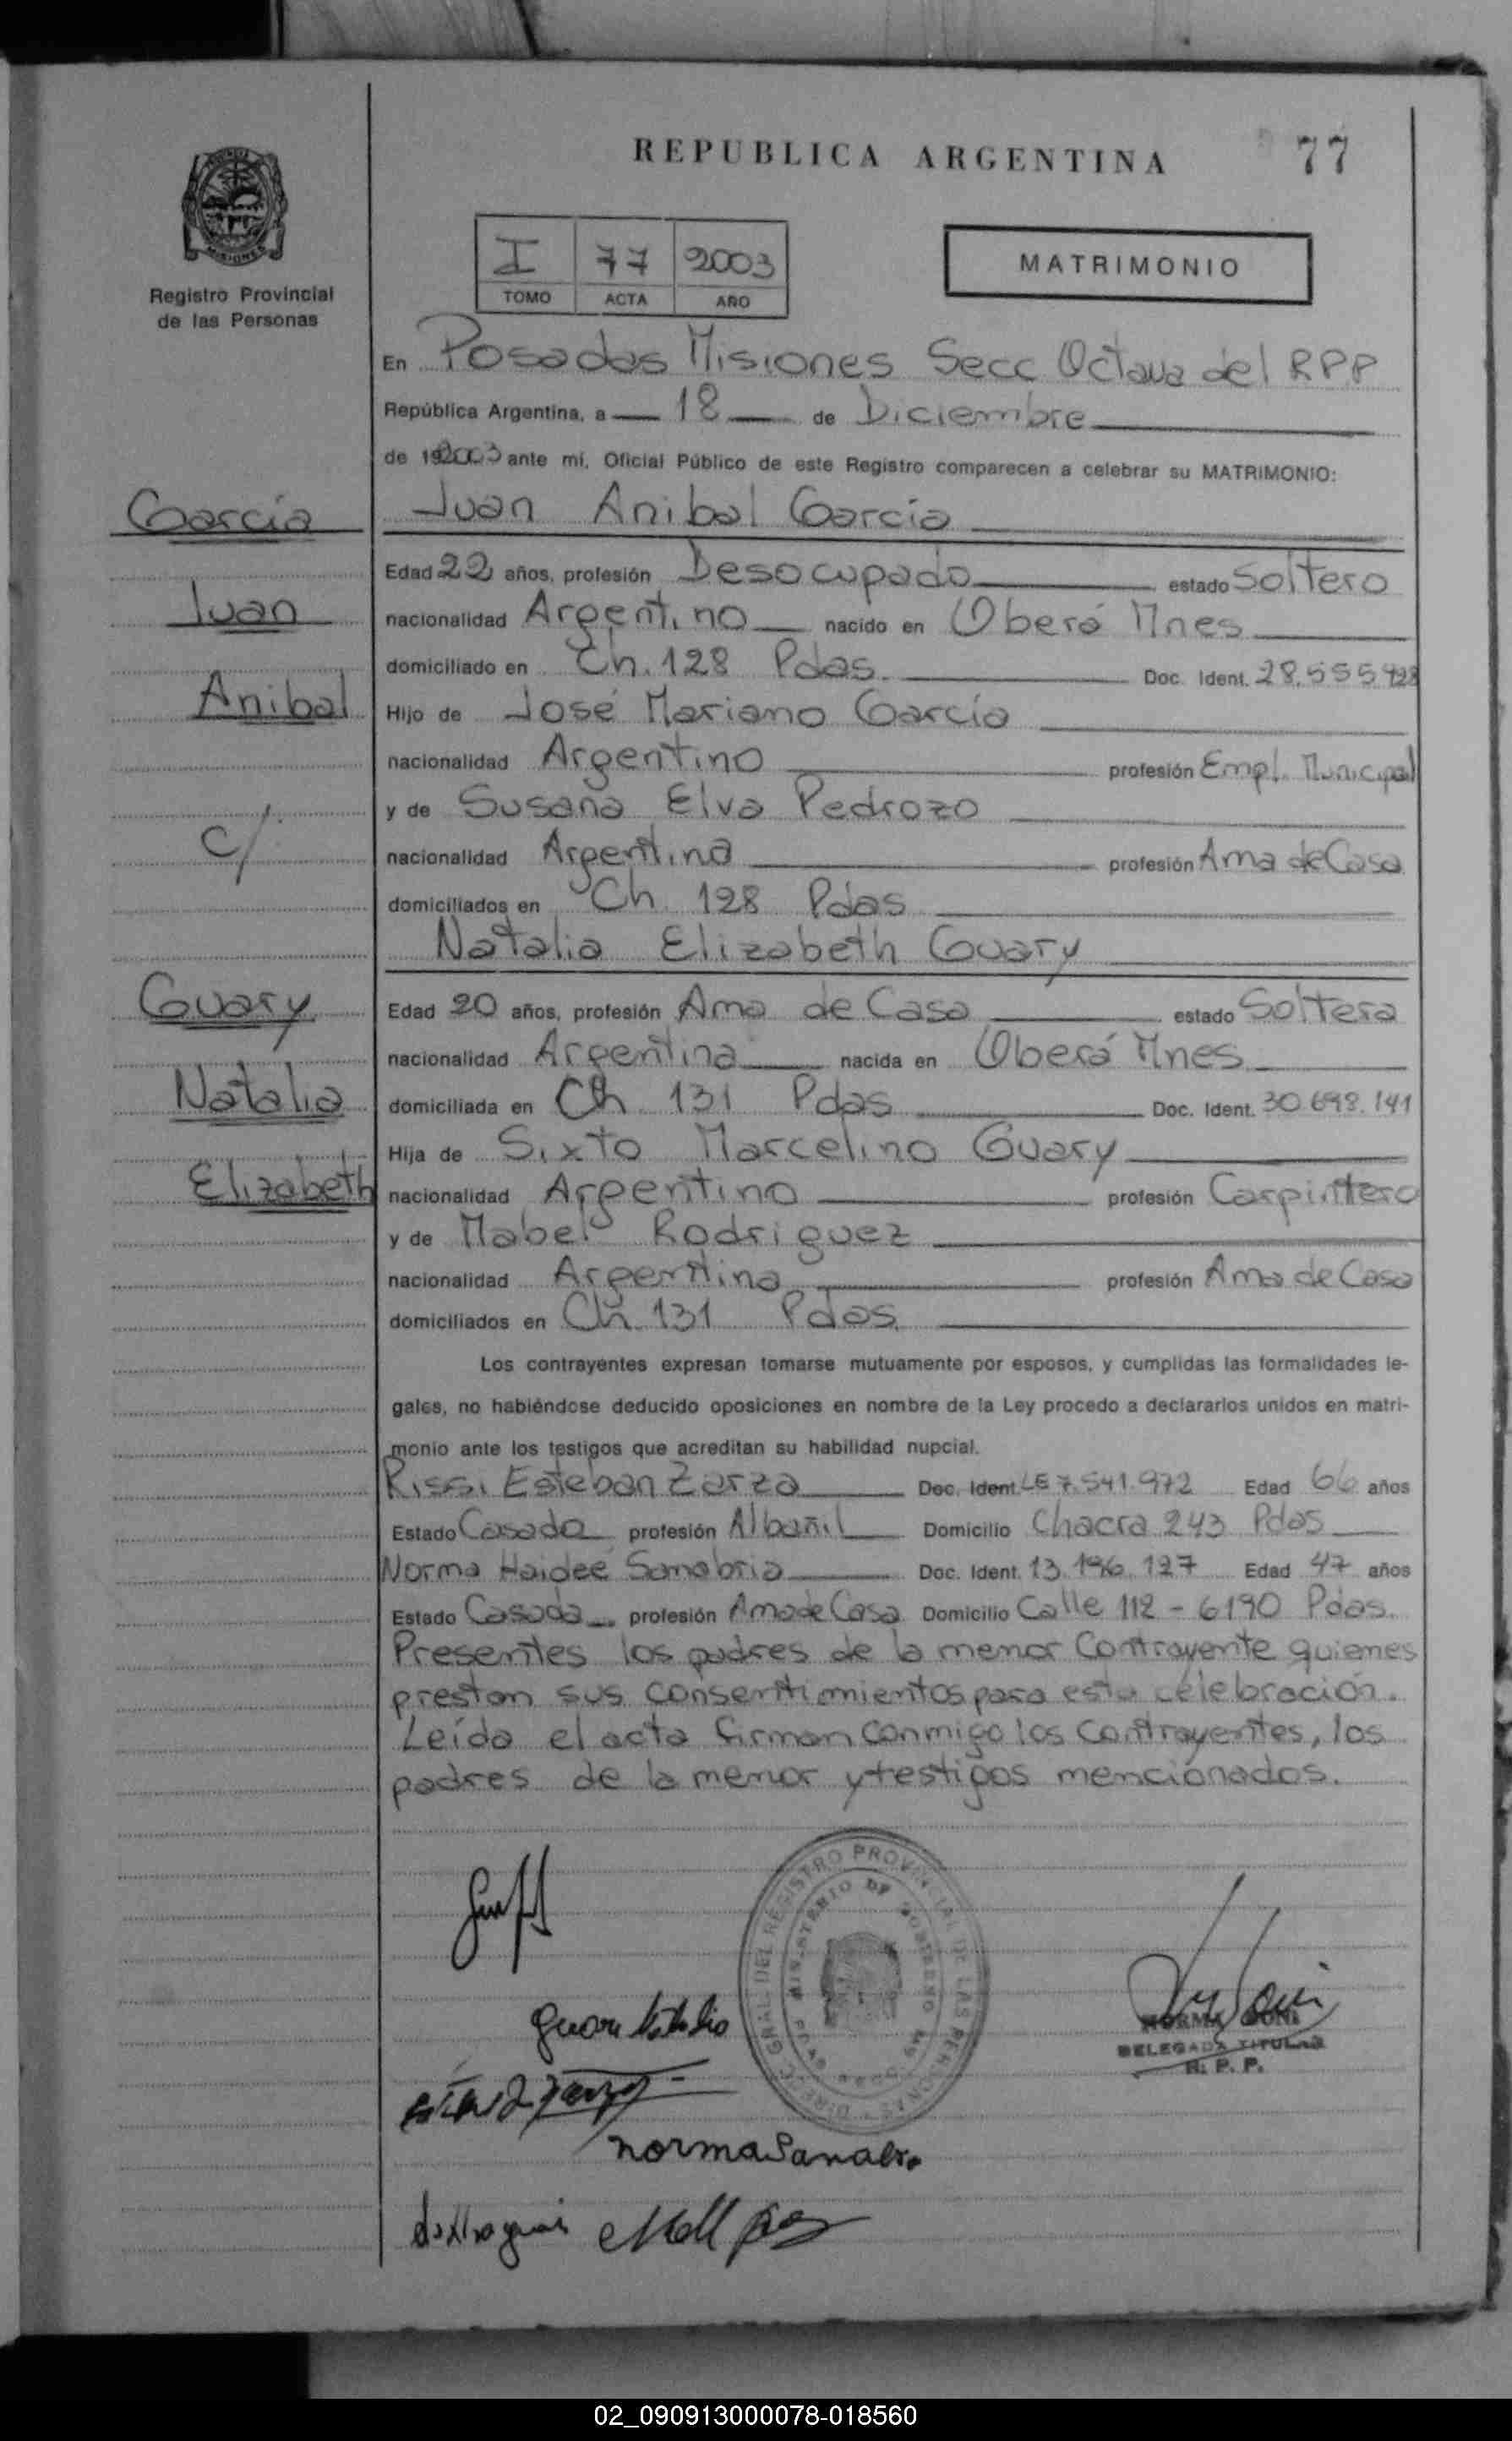 REPUBLICA ARGENTINA 77
Registro Provincial
de las Personas
I 77 2003
TOMO ACTA AÑO
MATRIMONIO
En Posadas Misiones Secc Octava del RPP
República Argentina, a 18 de Diciembre
de 2003 ante mí, Oficial Público de este Registro comparecen a celebrar su MATRIMONIO:
García
Juan Anibal García
Edad 22 años, profesión Desocupado estado Soltero
Juan
nacionalidad Argentino nacido en Oberá Mnes
domiciliado en Ch. 128 Pdas. Doc. Ident. 28.555.928
Anibal
Hijo de José Mariano García
nacionalidad Argentino profesión Empl. Municipal
y de Susana Elva Pedrozo
c/.
nacionalidad Argentina profesión Ama de Casa
domiciliados en Ch. 128 Pdas
Natalia Elizabeth Guary
Guary
Edad 20 años, profesión Ama de Casa estado Soltera
nacionalidad Argentina nacida en Oberá Mnes
Natalia
domiciliada en Ch 131 Pdas Doc. Ident. 30.698.141
Hija de Sixto Marcelino Guary
Elizabeth
nacionalidad Argentino profesión Carpintero
y de Mabel Rodriguez
nacionalidad Argentina profesión Ama de Casa
domiciliados en Ch. 131 Pdas.
Los contrayentes expresan tomarse mutuamente por esposos, y cumplidas las formalidades le-
gales, no habiéndose deducido oposiciones en nombre de la Ley procedo a declararlos unidos en matri-
monio ante los testigos que acreditan su habilidad nupcial.
Rissi Esteban Zarza Doc. Ident. LE 7.541.972 Edad 66 años
Estado Casado profesión Albañil Domicilio Chacra 243 Pdas
Norma Haideé Sanabria Doc. Ident. 13.196.127 Edad 47 años
Estado Casada profesión Ama de Casa Domicilio Calle 112 - 6190 Pdas.
Presentes los padres de la menor Contrayente quienes
prestan sus consentimientos para esta celebración.
Leída el acta firman conmigo los contrayentes, los
padres de la menor y testigos mencionados.
DIREC. GRAL. DEL REGISTRO PROVINCIAL DE LAS PERSONAS
MINISTERIO DE GOBIERNO
Guary Natalia
NORMA
DELEGADA TITULAR
R. P. P.
norma Sanabria
02_090913000078-018560